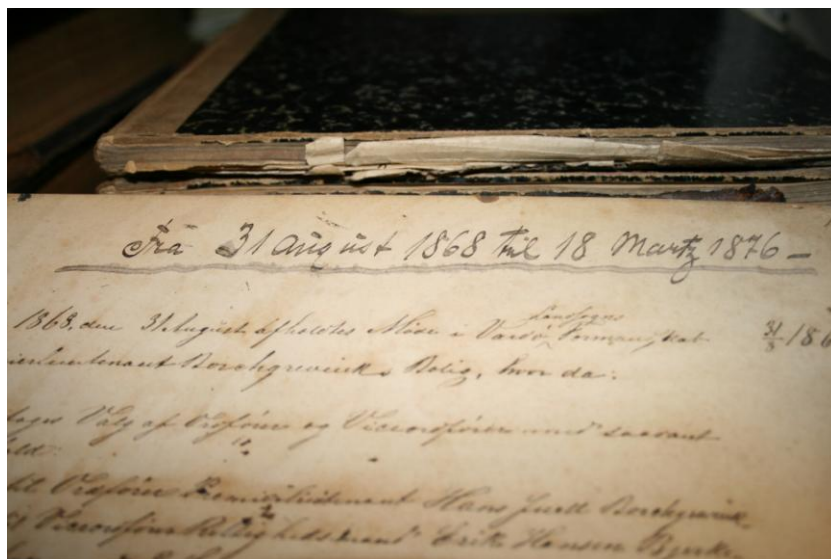 Fra 31 august 1868 til 18 Martz 1876 –
Landsogns
1868, den 31 August afholdtes Møde i Vardø Formandskab 31/8 186
Borchgrevinks Bolig, hvor da:
Valg af Ordfører og Viceordfører med saadant
til Ordfører Premierlieutenant Hans Juell Borchgrevink,
Viceordfører Rettighedsmand Erik Hansen Bjerke